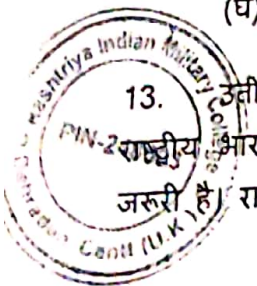 (घ)
13. उती
राष्ट्रीय भार
जरूरी है। रा
Rashtriya Indian Military College
PIN-2
Cantt (U.K.)